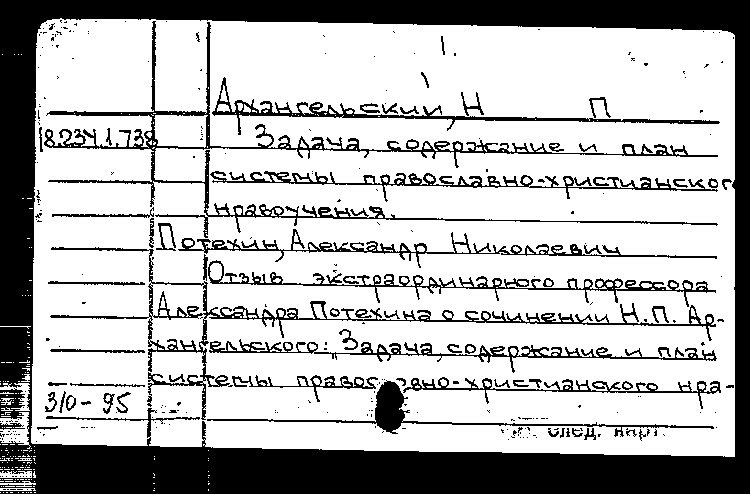 1.
Архангельский, Н П
18.234.1.738 Задача, содержание и план
системы православно-христианского
нравоучения.
Потехин, Александр Николаевич
Отзыв экстраординарного профессора
Александра Потехина о сочинении Н.П. Ар-
хангельского: „Задача, содержание и план
системы православно-христианского нра-
310-95
след. карт.